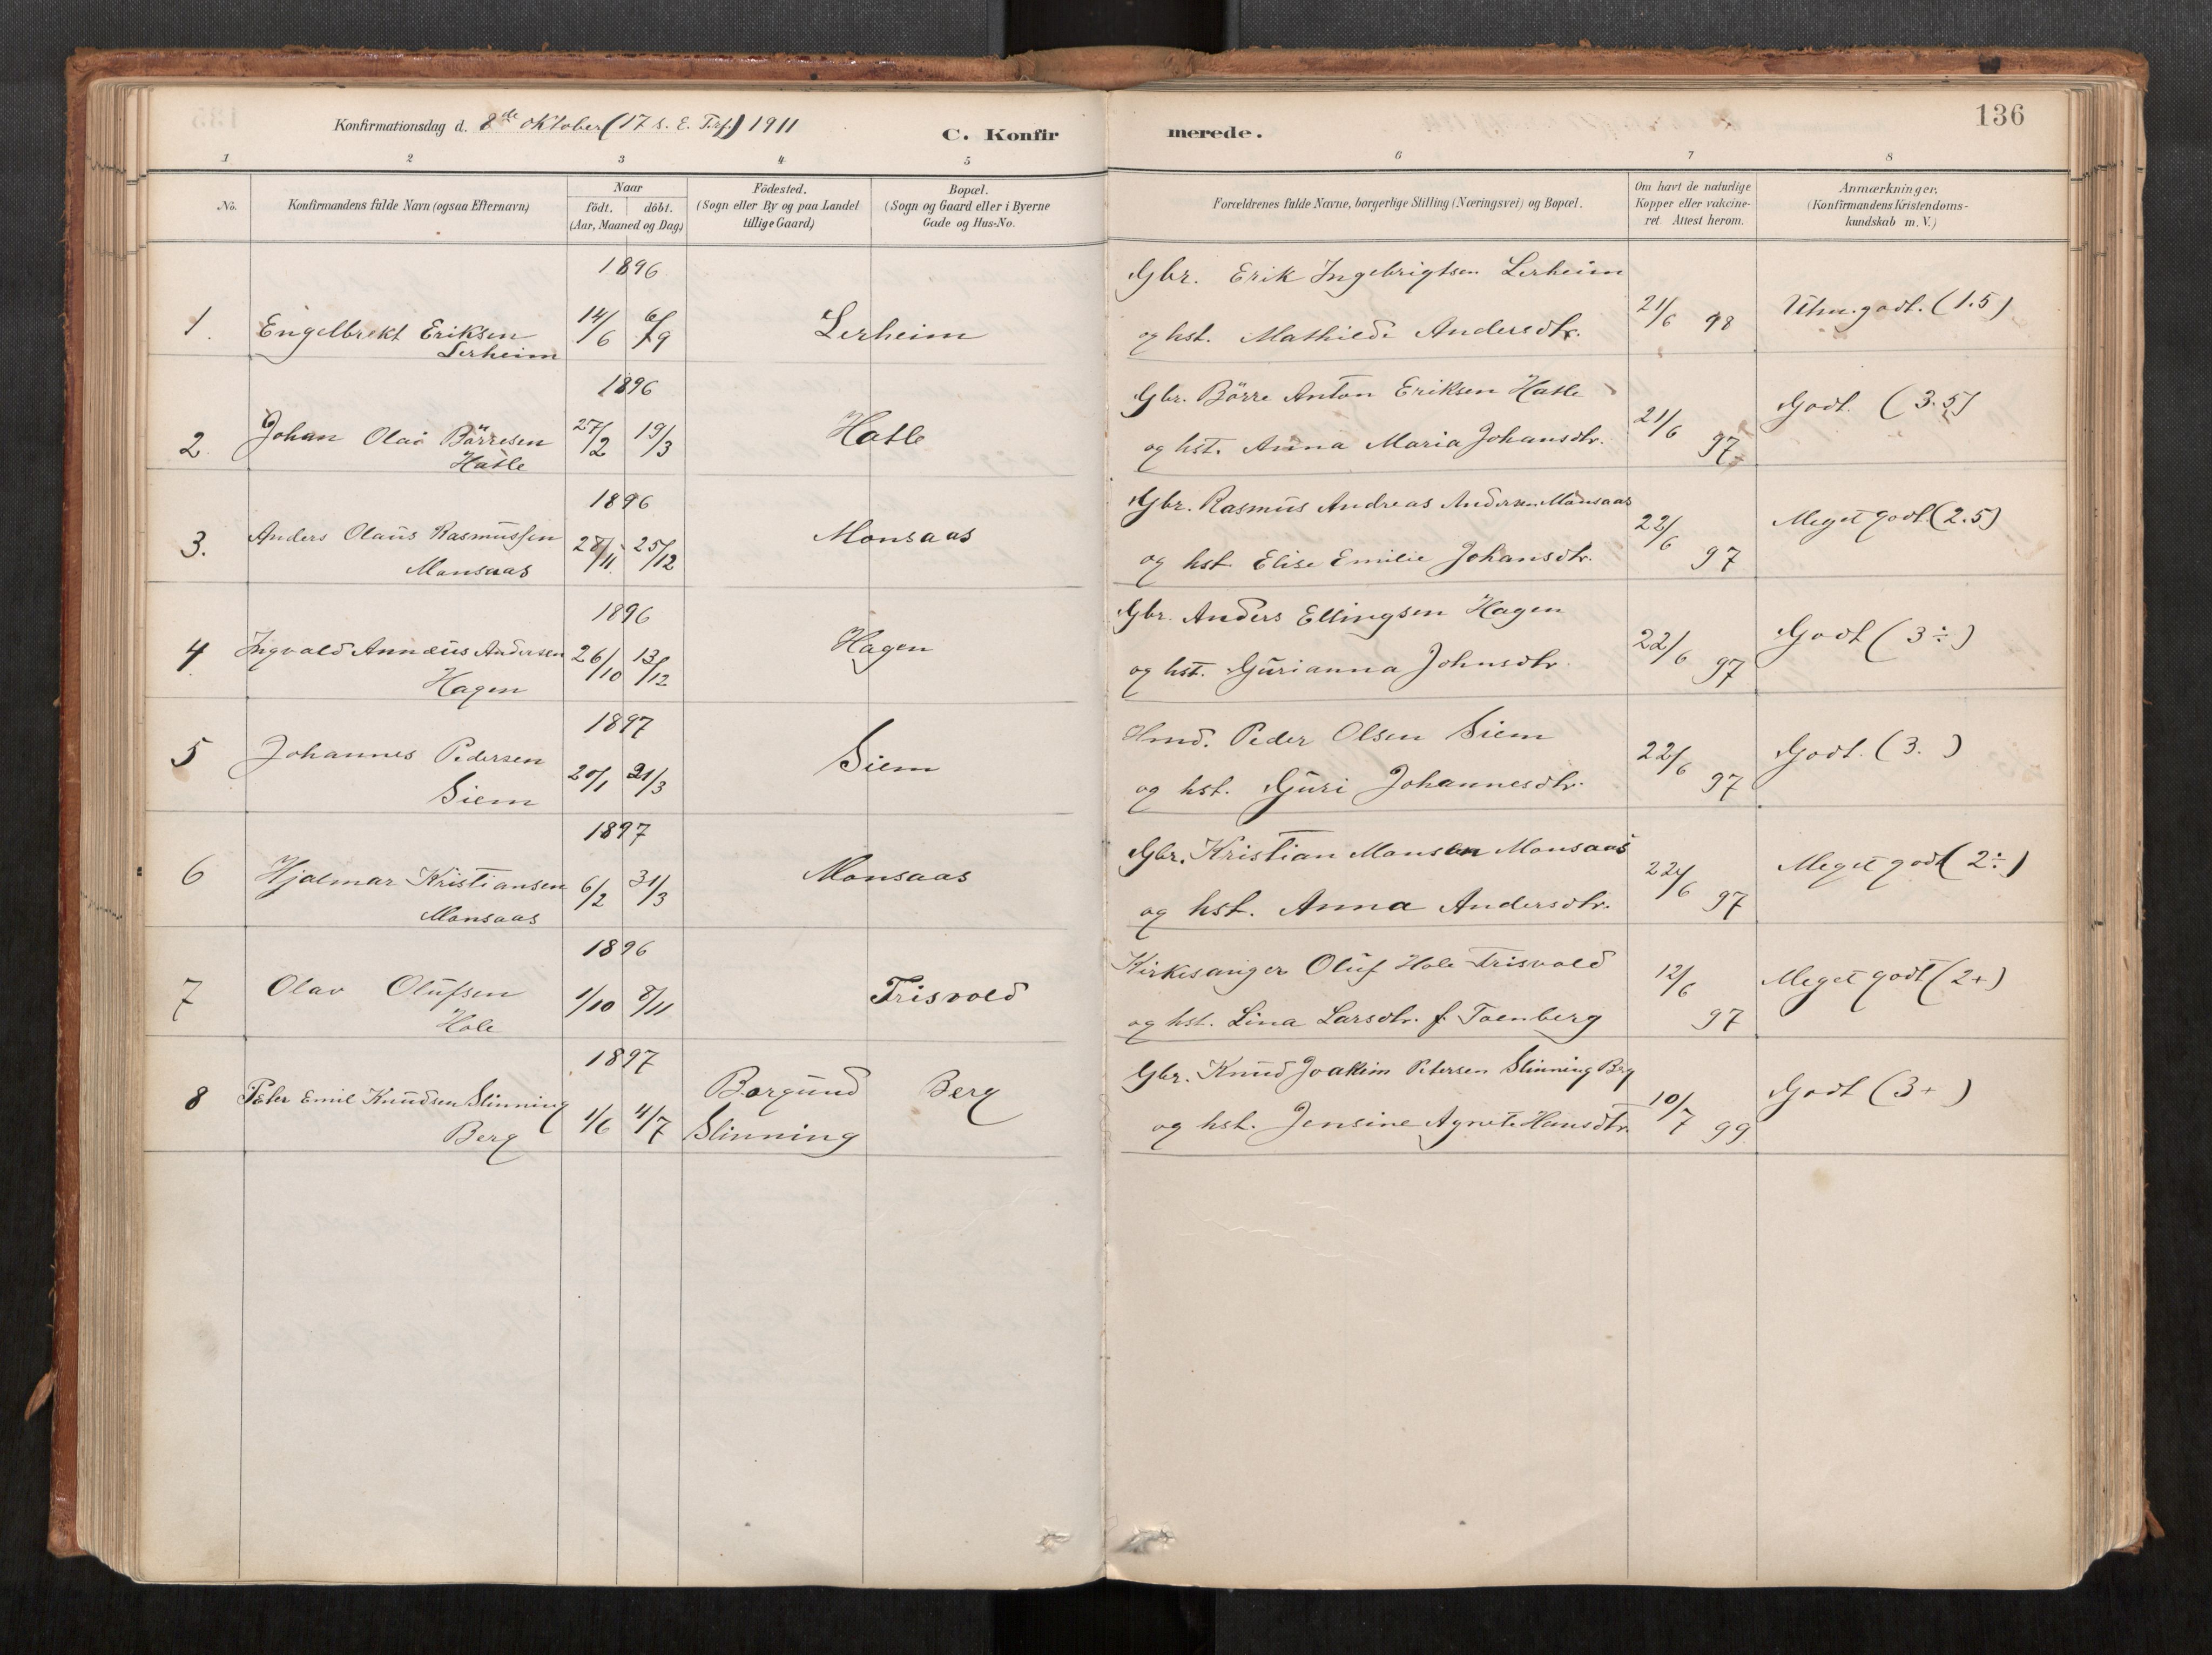 136
Konfirmationsdag d. 8de oktober (17 s. E. Tref.) 1911
C. Konfirmerede.
1 2 3 4 5 6 7 8
No.
Konfirmandens fulde Navn (ogsaa Efternavn)
Naar
født. døbt.
(Aar, Maaned og Dag)
Födested.
(Sogn eller By og paa Landet
tillige Gaard)
Bopæl.
(Sogn og Gaard eller i Byerne
Gade og Hus-No.
Forældrenes fulde Navne, borgerlige Stilling (Næringsvei) og Bopæl.
Om havt de naturlige
Kopper eller vakcine-
ret. Attest herom.
Anmærkninger,
(Konfirmandens Kristendoms-
kundskab m. V.)
1896
1. Engelbrekt Eriksen
Lerheim
14/6 6/9 Lerheim
Gbr. Erik Ingebrigtsen Lerheim
og hst. Mathilde Andersdtr.
21/6 98
Utm. godt. (1.5)
1896
2. Johan Olai Börresen
Hatle
27/2 19/3 Hatle
Gbr. Börre Anton Eriksen Hatle
og hst. Anna Maria Johansdtr.
21/6 97
Godt. (3.5)
1896
3. Anders Olaus Rasmussen
Monsaas
28/11 25/12 Monsaas
Gbr. Rasmus Andreas Andersen Monsaas
og hst. Elise Emilie Johansdtr.
22/6 97
Meget godt. (2.5)
1896
4. Ingvald Annæus Andersen
Hagen
26/10 13/12 Hagen
Gbr. Anders Ellingsen Hagen
og hst. Gurianna Johnsdtr.
22/6 97
Godt (3÷)
1897
5 Johannes Pedersen
Siem
20/1 21/3 Siem
Hmd. Peder Olsen Siem
og hst. Guri Johannesdtr.
22/6 97
Godt. (3.)
1897
6 Hjalmar Kristiansen
Monsaas
6/2 31/3 Monsaas
Gbr. Kristian Monsen Monsaas
og hst. Anna Andersdtr.
22/6 97
Meget godt (2÷)
1896
7 Olav Olufsen
Hole
1/10 8/11 Trisvold
Kirkesanger Oluf Hole Trisvold
og hst. Lina Larsdtr. f. Toenberg
12/6 97
Meget godt (2+)
1897
8 Peter Emil Knudsen Slinning
Berg
1/6 4/7 Borgund
Slinning
Berg
Gbr. Knud Joakim Petersen Slinning Berg
og hst. Jensine Agnete Hansdtr.
10/7 99
Godt (3+)